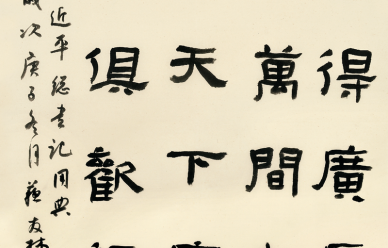 得廣
萬間
天下
俱歡
近平總書記用典
次庚子冬月蘇友